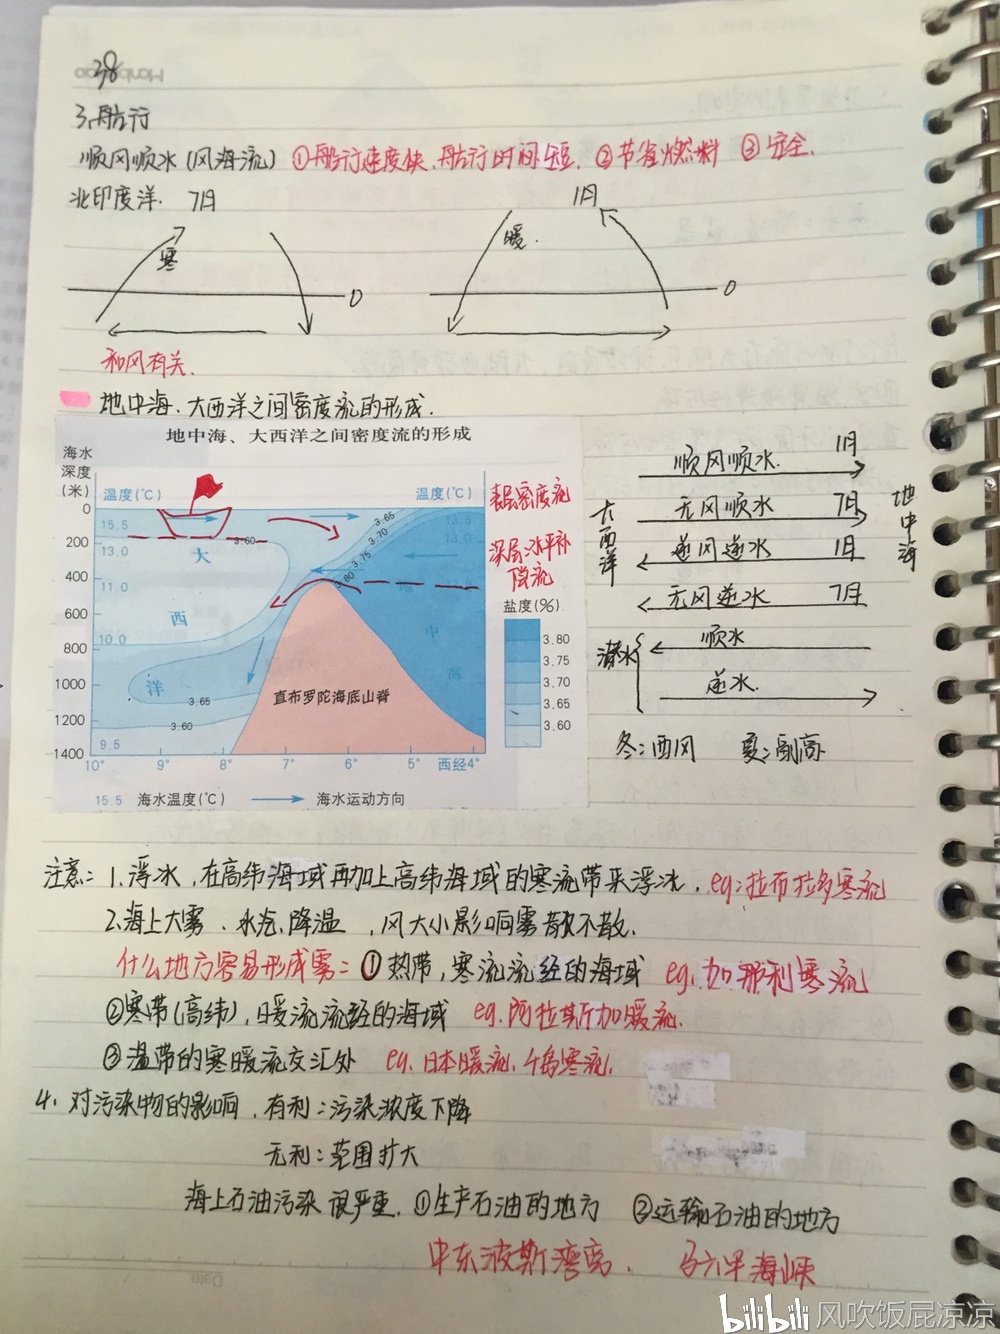 38
3.航行
顺风顺水(风海流) ①船行速度快、航行时间短. ②节省燃料 ③安全.
北印度洋. 7月 1月
寒 暖.
0 0
和风有关.
地中海、大西洋之间密度流的形成.
地中海、大西洋之间密度流的形成
海水
深度
(米)
温度(℃) 温度(℃)
0
200
400
600
800
1000
1200
1400
15.5
13.0
11.0
10.0
9.5
13.5
3.60
3.65
3.70
3.75
3.80
3.65
3.60
大
西
洋
地
中
海
直布罗陀海底山脊
10° 9° 8° 7° 6° 5° 西经4°
15.5 海水温度(℃) 海水运动方向
表层密度流
深层:水平补
偿流
盐度(%)
3.80
3.75
3.70
3.65
3.60
大西洋
地中海
顺风顺水. 1月
无风顺水 7月
逆风逆水 1月
无风逆水 7月
潜水
顺水
逆水.
冬:西风 夏:副高
注意: 1.浮冰,在高纬海域再加上高纬海域的寒流带来浮冰. eg:拉布拉多寒流
2.海上大雾、水汽、降温,风大小影响雾散不散.
什么地方容易形成雾: ①热带,寒流流经的海域 eg.加那利寒流
②寒带(高纬),暖流流经的海域 eg.阿拉斯加暖流.
③温带的寒暖流交汇处 eg.日本暖流.千岛寒流.
4. 对污染物的影响.有利:污染浓度下降
无利:范围扩大
海上石油污染很严重. ①生产石油的地方 ②运输石油的地方
中东波斯湾 . 马六甲海峡
bilibili 风吹饭屁凉凉